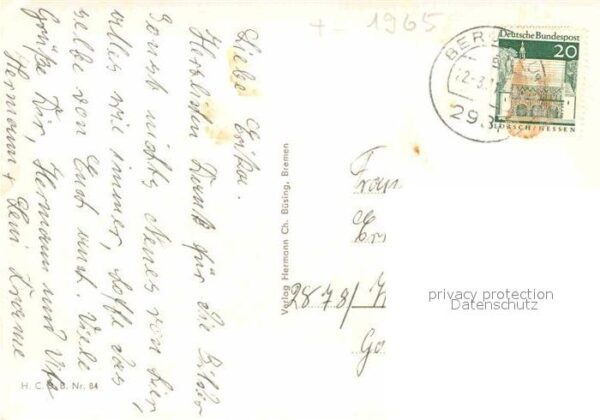 +- 1965
Liebe Erika.
Herzlichen Dank für die Bilder
Sonst nichts Neues von hier,
alles wie immer, hoffe das
selbe von Euch auch. Viele
Grüße Dir, Hermann und
Hermann + Leni
Verlag Hermann Ch. Büsing, Bremen
H. C. B. B. Nr. 84
BER
22-3.
293
Deutsche Bundespost
20
LORSCH/HESSEN
Frau
Er
2878/
privacy protection
Datenschutz